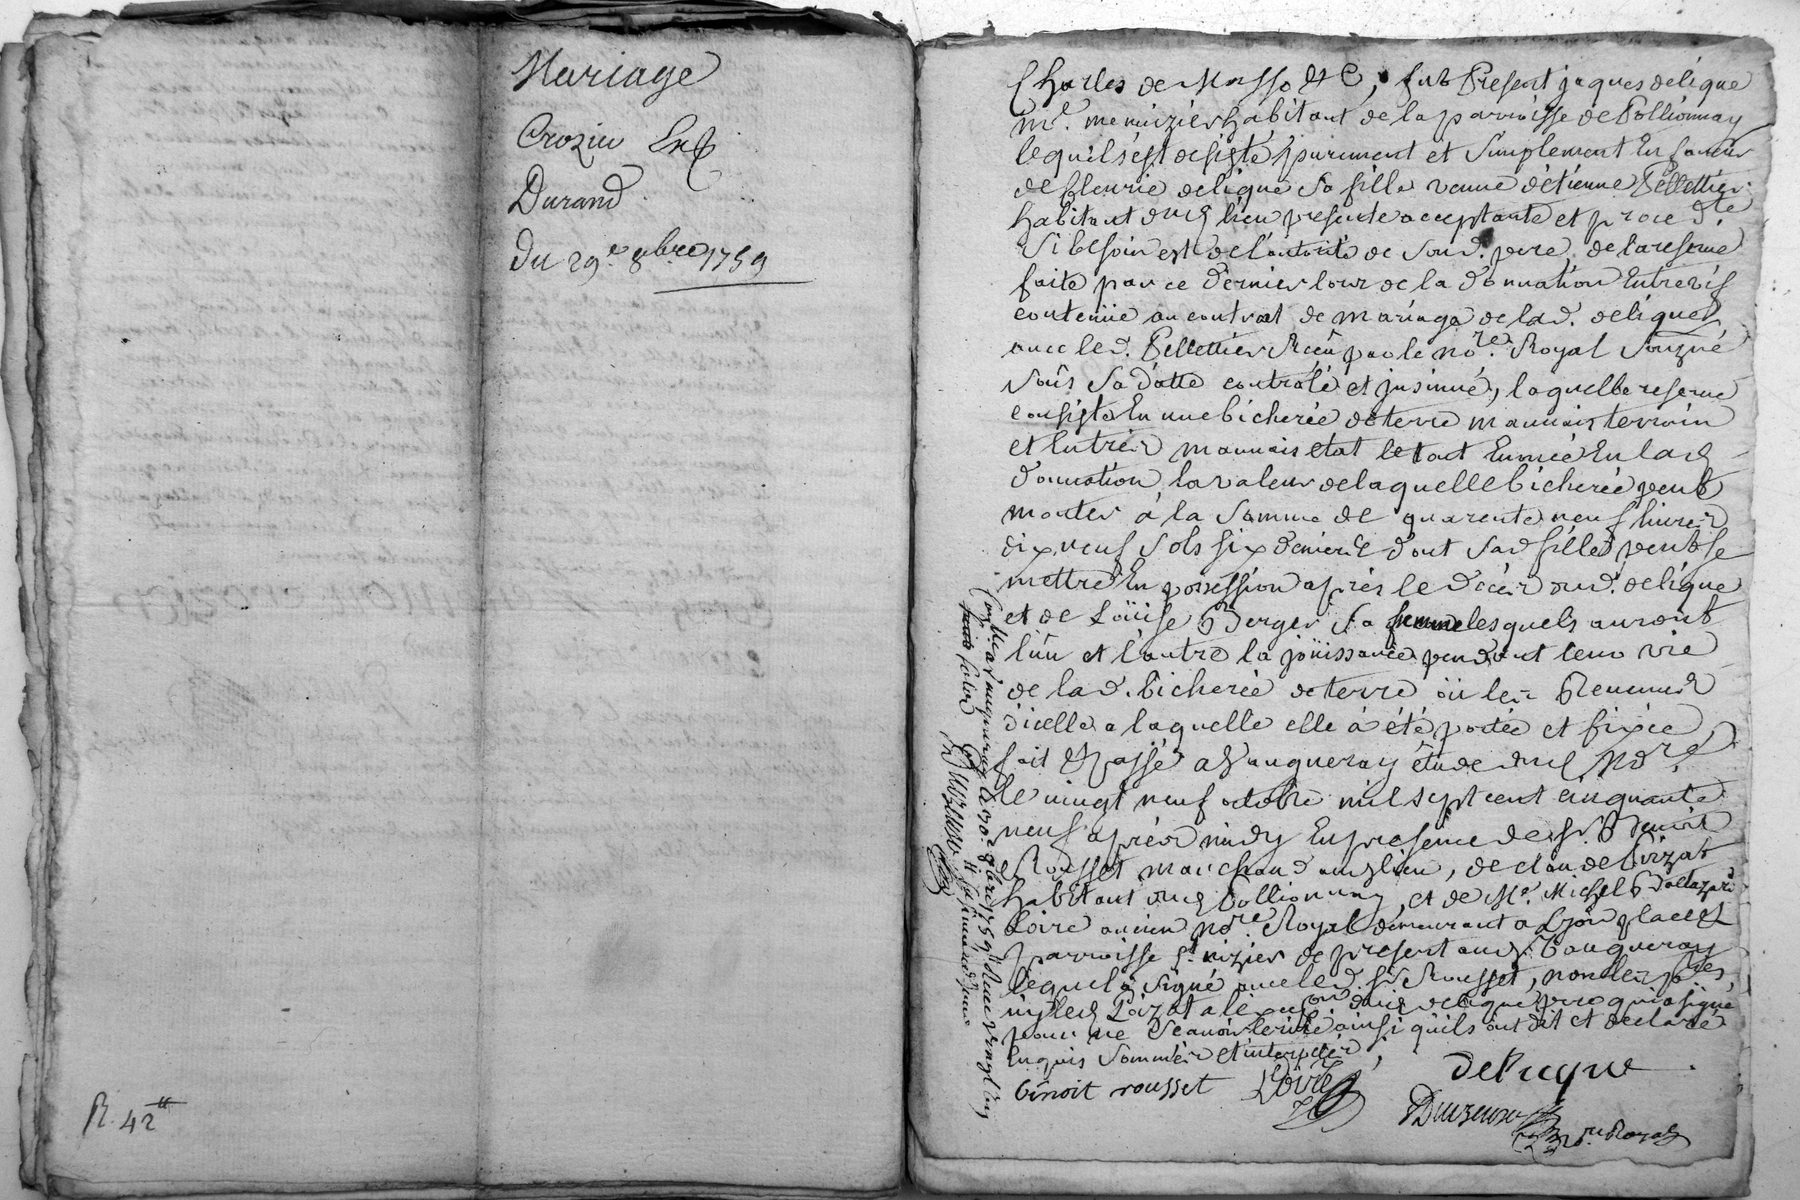 Mariage
Crozier Et
Durand
Du 29e 8bre 1759
R. 42tt
Charles de Masso &c, fut Present jaques deligue
md. menuizier habitant de la parroisse de Pollionnay
lequel s'est desisté purement et simplement En faveur
de fleurie deligue Sa fille veuve d'étienne Pellettier
habitant dud. lieu presente acceptante et proced.te
Si besoin est de l'autorité de Sond. pere, de la reserve
faite par ce dernier lors de la donnation Entrevif
contenüe au contrat de mariage de lad. deligue
avec led. Pellettier Receu par le no.re Royal Souzné
Sous Sa datte controlé et insinué, laquelle reserve
consiste En une bicherée de terre mauvais terrain
et En tres mauvais etat le tout Enoncé En lad.
donnation la valeur de laquelle bicherée peut
monter à la Somme de quarente neuf livres
dix neuf Sols six deniers dont Sad. fille peut se
mettre En possession après le décéz dud. deligue
et de Loüise Berger Sa femme lesquels auront
l'un et l'autre la joüissance pendant leur vie
de lad. bicherée de terre où les Revenus
d'icelle a laquelle elle à été portée et fixée,
fait & passé a Vaugneray étude dud. No.re
le vingt neuf octobre mil sept cent cinquante
neuf après midy En presence de Sr. Benoit
Rousset marchand aud. lieu, de claude Poizat
habitant aud. Pollionnay, et de Me. Michel Baltazard
Loire ancien no.re Royal demeurant a Lyon place et
parroisse St. nizier de present aud. Vaugneray
lequel a Signé avec led. Sr. Rousset, non les p.tes
ny led. Poizat a l'ex.on dud. deligue pere qui a signé
pour ne Scavoir Ecrire ainsi qu'ils ont dit et declaré
Enquis Sommés et interpellés
benoit rousset Loire
deligue
no.re Royal